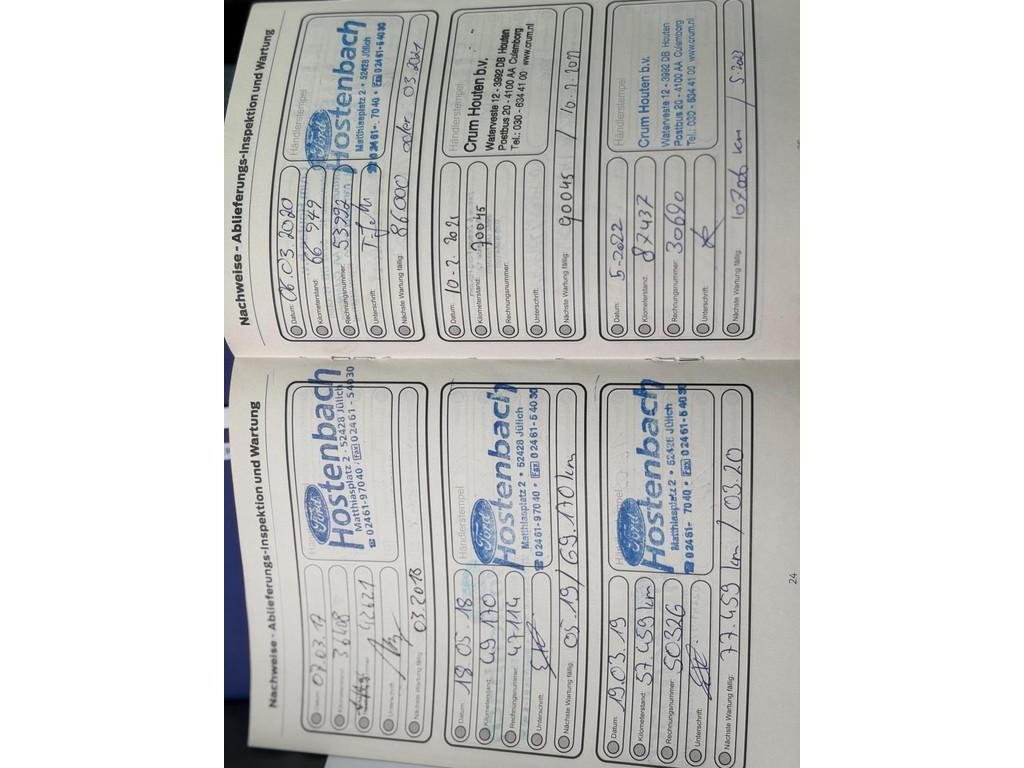 Nachweise - Ablieferungs-Inspektion und Wartung
Datum: 07.03.17
36408
42621
Nächste Wartung fällig: 03.2018
Ford
Hostenbach
Matthiasplatz 2 · 52428 Jülich
☎ 02461-97040 · Fax 02461-54030
Händlerstempel
Datum: 18.05.18
Kilometerstand: 49.170
Rechnungsnummer: 47114
Unterschrift:
Nächste Wartung fällig: 05.19/69.170 km
Ford
Hostenbach
Matthiasplatz 2 • 52428 Jülich
☎ 02461-97040 • Fax 02461-54030
Händlerstempel
Datum: 19.03.19
Kilometerstand: 57.459 km
Rechnungsnummer: 50326
Unterschrift:
Nächste Wartung fällig: 77.459 km / 03.20
Ford
Hostenbach
Matthiasplatz 2 • 52428 Jülich
☎ 02461- 7040 • Fax 02461-54030
24
Nachweise - Ablieferungs-Inspektion und Wartung
Händlerstempel
Datum: 06.03.2020
Kilometerstand: 66.949
Rechnungsnummer: 53992
Unterschrift:
Nächste Wartung fällig: 86000 oder 03.2021
Ford
Hostenbach
Matthiasplatz 2 • 52428 Jülich
☎ 02461- 7040 • Fax 02461-54030
Händlerstempel
Datum: 10-2-2021
Kilometerstand: 70045
Rechnungsnummer:
Unterschrift:
Nächste Wartung fällig: 90045 / 10-2-2022
Crum Houten b.v.
Waterveste 12 - 3992 DB Houten
Postbus 20 - 4100 AA Culemborg
Tel.: 030 - 634 41 00 www.crum.nl
Händlerstempel
Datum: 5-2022
Kilometerstand: 87437
Rechnungsnummer: 30690
Unterschrift:
Nächste Wartung fällig: 107000 km / 5-2023
Crum Houten b.v.
Waterveste 12 - 3992 DB Houten
Postbus 20 - 4100 AA Culemborg
Tel.: 030 - 634 41 00 www.crum.nl